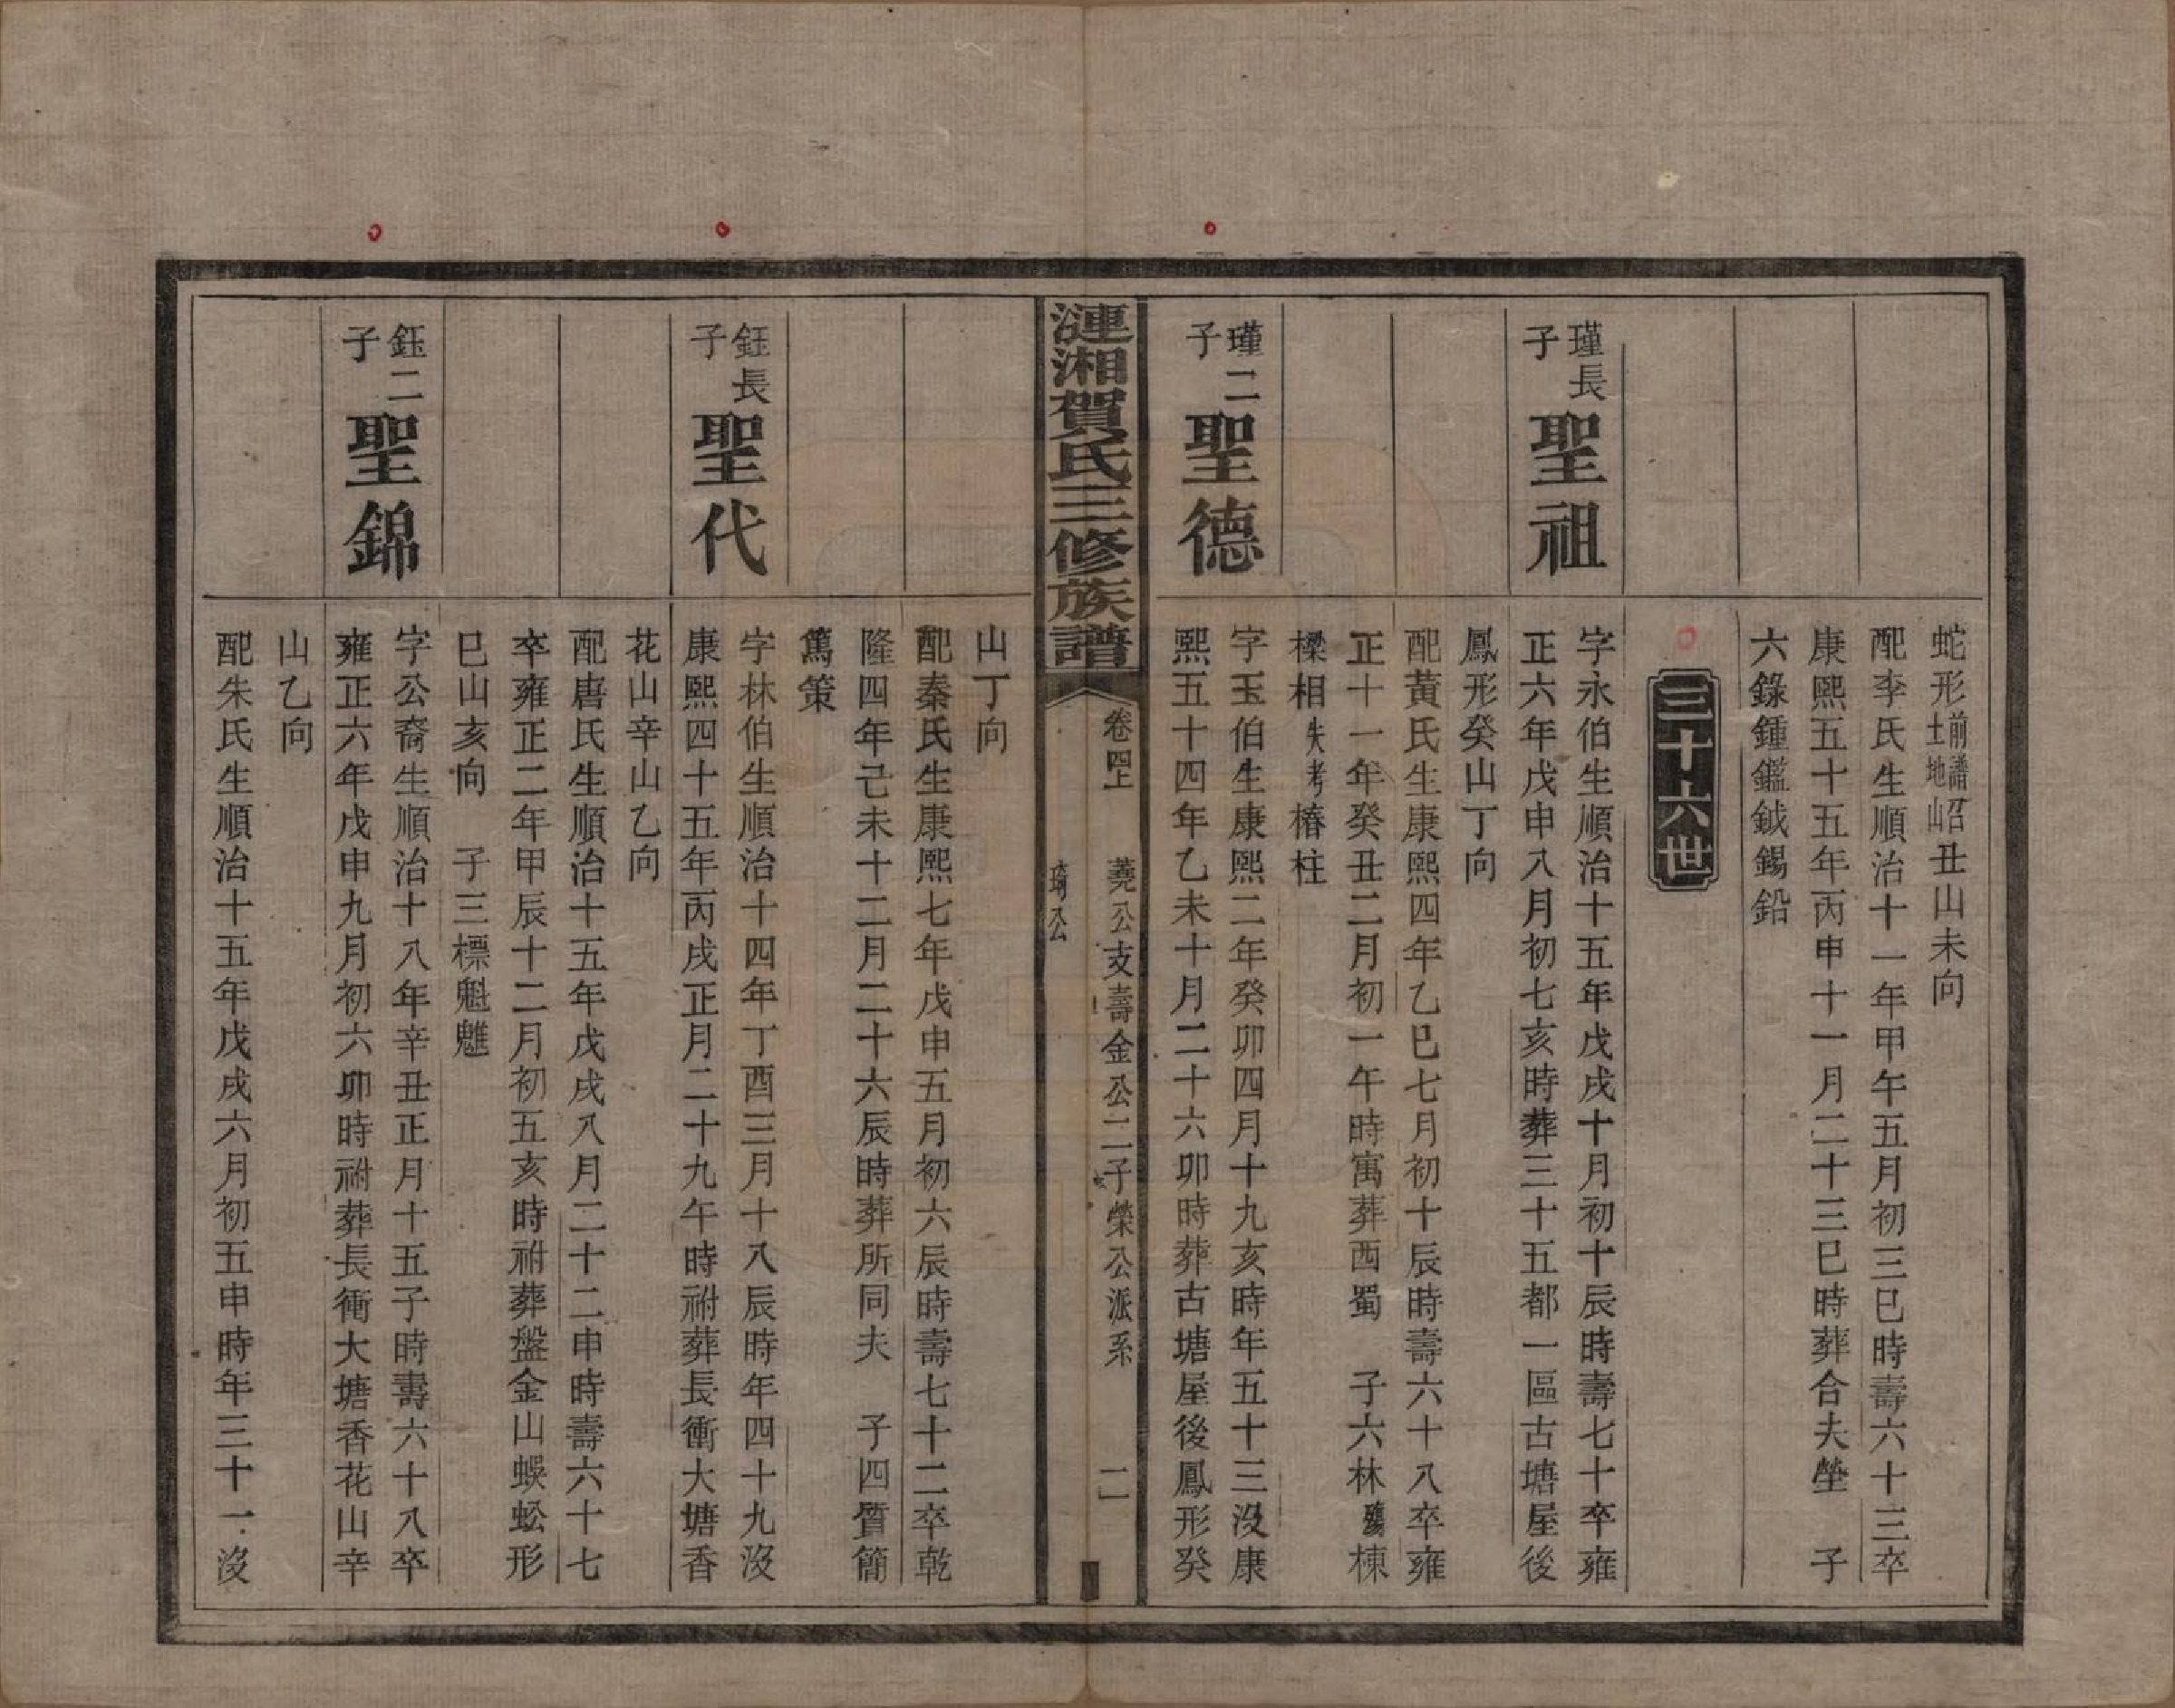 蛇形前譜召土地山丑山未向
配李氏生順治十一年甲午五月初三巳時壽六十三卒
康熙五十五年丙申十一月二十三巳時葬合夫塋　子
六錄鍾鑑鉞錫鉛
三十六世
瑾長子
聖祖
字永伯生順治十五年戊戌十月初十辰時壽七十卒雍
正六年戊申八月初七亥時葬三十五都一區古塘屋後
鳳形癸山丁向
配黃氏生康熙四年乙巳七月初十辰時壽六十八卒雍
正十一年癸丑二月初一午時寓葬西蜀　子六林殤棟
樑相失考椿柱
瑾二子
聖德
字玉伯生康熙二年癸卯四月十九亥時年五十三沒康
熙五十四年乙未十月二十六卯時葬古塘屋後鳳形癸
漣湘賀氏三修族譜
卷四上
蕘公支壽金公二子榮公派系
琦公
二
山丁向
配秦氏生康熙七年戊申五月初六辰時壽七十二卒乾
隆四年己未十二月二十六辰時葬所同夫　子四質簡
篤策
鈺長子
聖代
字林伯生順治十四年丁酉三月十八辰時年四十九沒
康熙四十五年丙戌正月二十九午時祔葬長衝大塘香
花山辛山乙向
配唐氏生順治十五年戊戌八月二十二申時壽六十七
卒雍正二年甲辰十二月初五亥時祔葬盤金山蜈蚣形
巳山亥向　子三標魁魋
鈺二子
聖錦
字公裔生順治十八年辛丑正月十五子時壽六十八卒
雍正六年戊申九月初六卯時祔葬長衝大塘香花山辛
山乙向
配朱氏生順治十五年戊戌六月初五申時年三十一沒